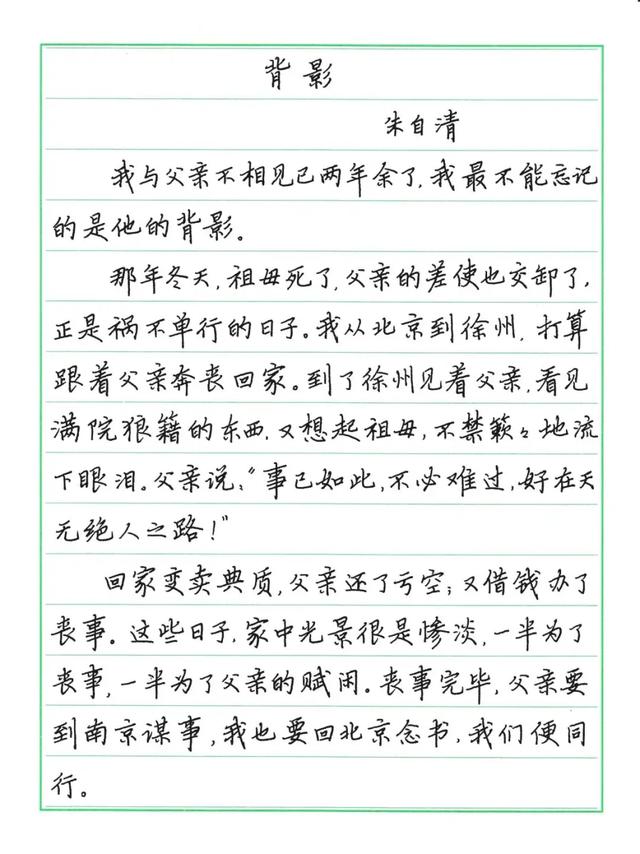 背影
朱自清
我与父亲不相见已两年余了,我最不能忘记
的是他的背影。
那年冬天,祖母死了,父亲的差使也交卸了,
正是祸不单行的日子。我从北京到徐州,打算
跟着父亲奔丧回家。到了徐州见着父亲,看见
满院狼籍的东西,又想起祖母,不禁簌々地流
下眼泪。父亲说:“事已如此,不必难过,好在天
无绝人之路!”
回家变卖典质,父亲还了亏空;又借钱办了
丧事。这些日子,家中光景很是惨淡,一半为了
丧事,一半为了父亲的赋闲。丧事完毕,父亲要
到南京谋事,我也要回北京念书,我们便同
行。